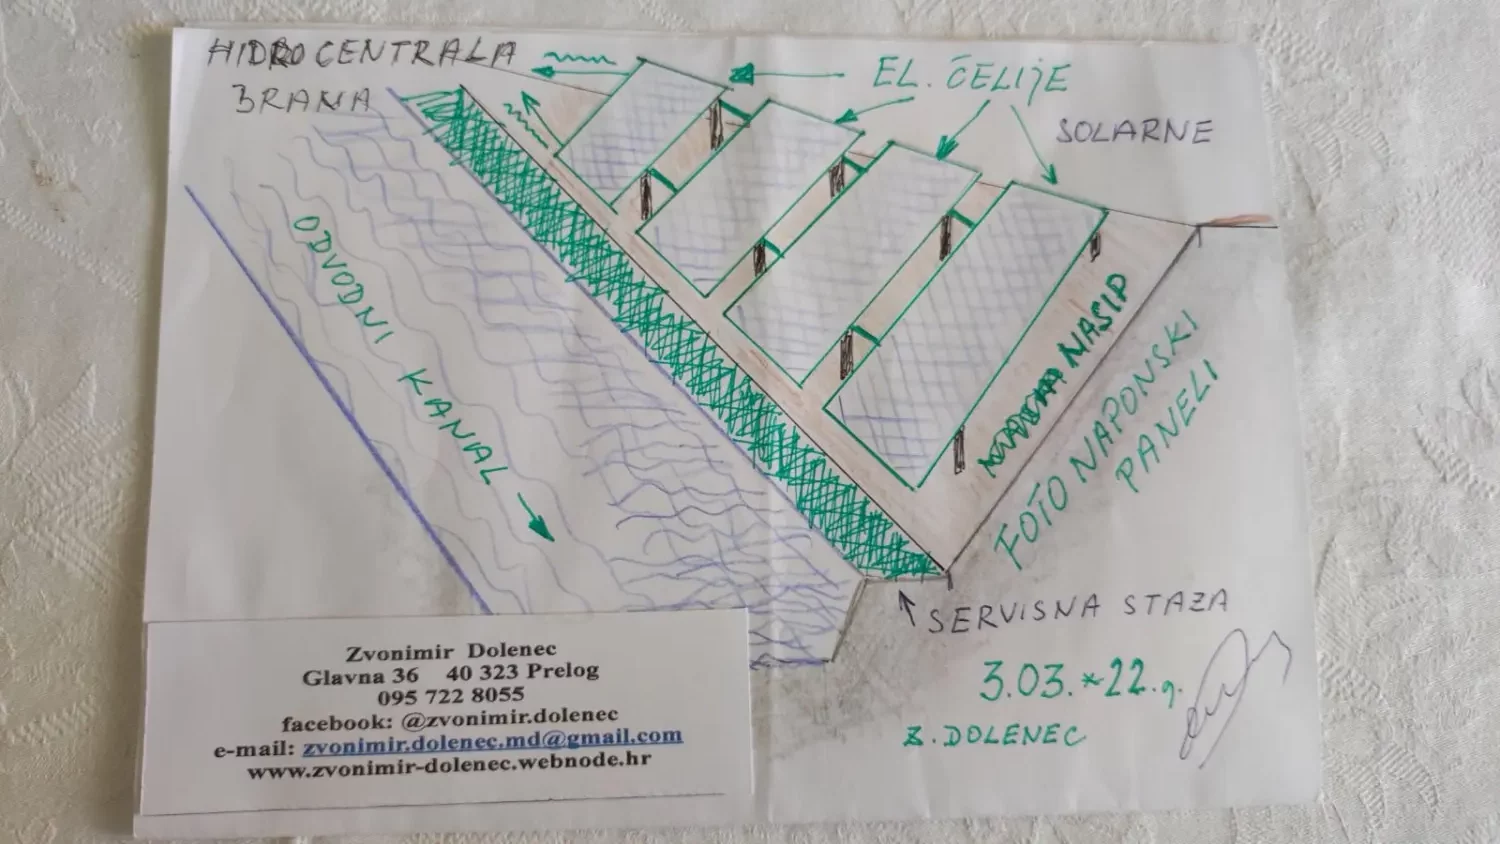 HIDROCENTRALA
BRANA
EL. ČELIJE
SOLARNE
ODVODNI KANAL
NASIP
FOTO NAPONSKI
PANELI
SERVISNA STAZA
3.03.*22.g.
Z. DOLENEC
Zvonimir Dolenec
Glavna 36 40 323 Prelog
095 722 8055
facebook: @zvonimir.dolenec
e-mail: zvonimir.dolenec.md@gmail.com
www.zvonimir-dolenec.webnode.hr